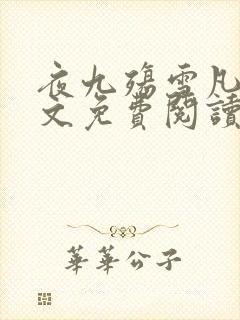 夜九殤雪凡
文免費閱讀
華華公子